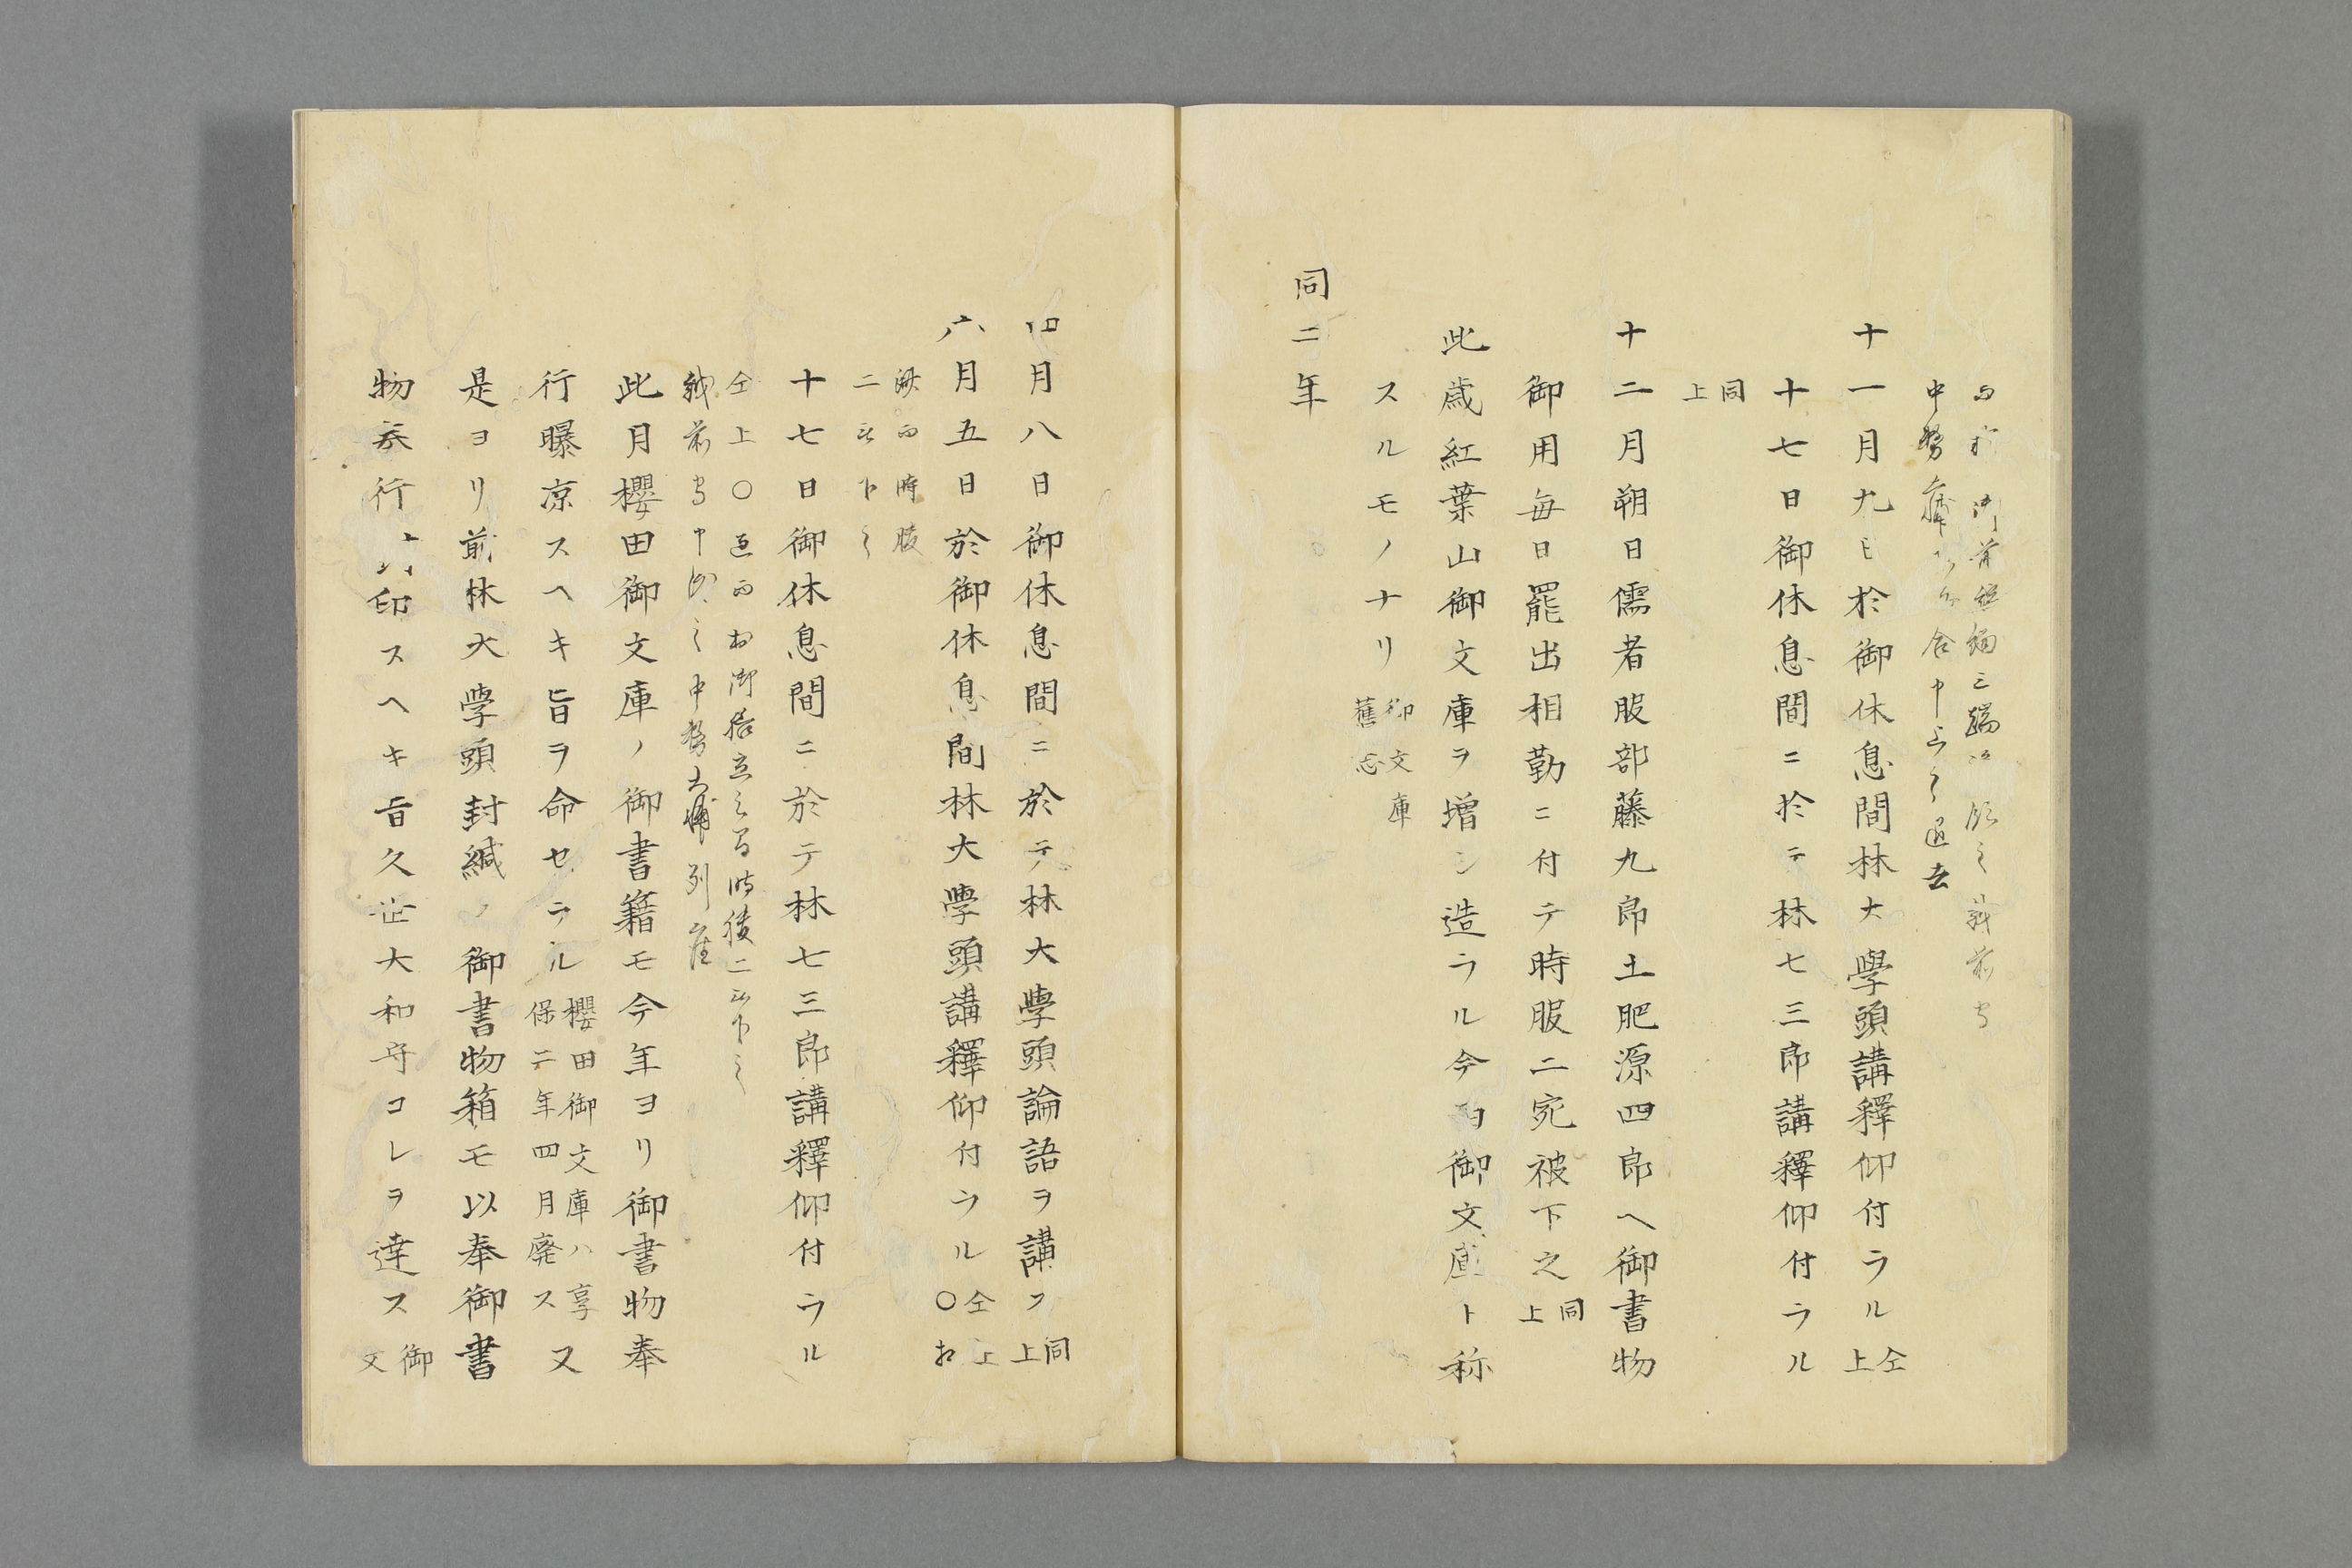 中務
十一月九日於御休息間林大學頭講釋仰付ラル 仝上
十七日御休息間ニ於テ林七三郎講釋仰付ラル
同上
十二月朔日儒者服部藤九郎土肥源四郎ヘ御書物
御用毎日罷出相勤ニ付テ時服二宛被下之 同上
此歳紅葉山御文庫ヲ増シ造ラル今西御文庫ト称
スルモノナリ 御文庫舊志
同二年
四月八日御休息間ニ於テ林大學頭論語ヲ講ス 同上
六月五日於御休息間林大學頭講釋仰付ラル 仝上〇お
時服
二
十七日御休息間ニ於テ林七三郎講釋仰付ラル
仝上〇
越前守
此月櫻田御文庫ノ御書籍モ今年ヨリ御書物奉
行曝凉スヘキ旨ヲ命セラル 櫻田御文庫ハ享保二年四月廃ス 又
是ヨリ前林大學頭封緘ノ御書物箱モ以奉御書
物奉行 印スヘキ旨久世大和守コレヲ達ス 御文